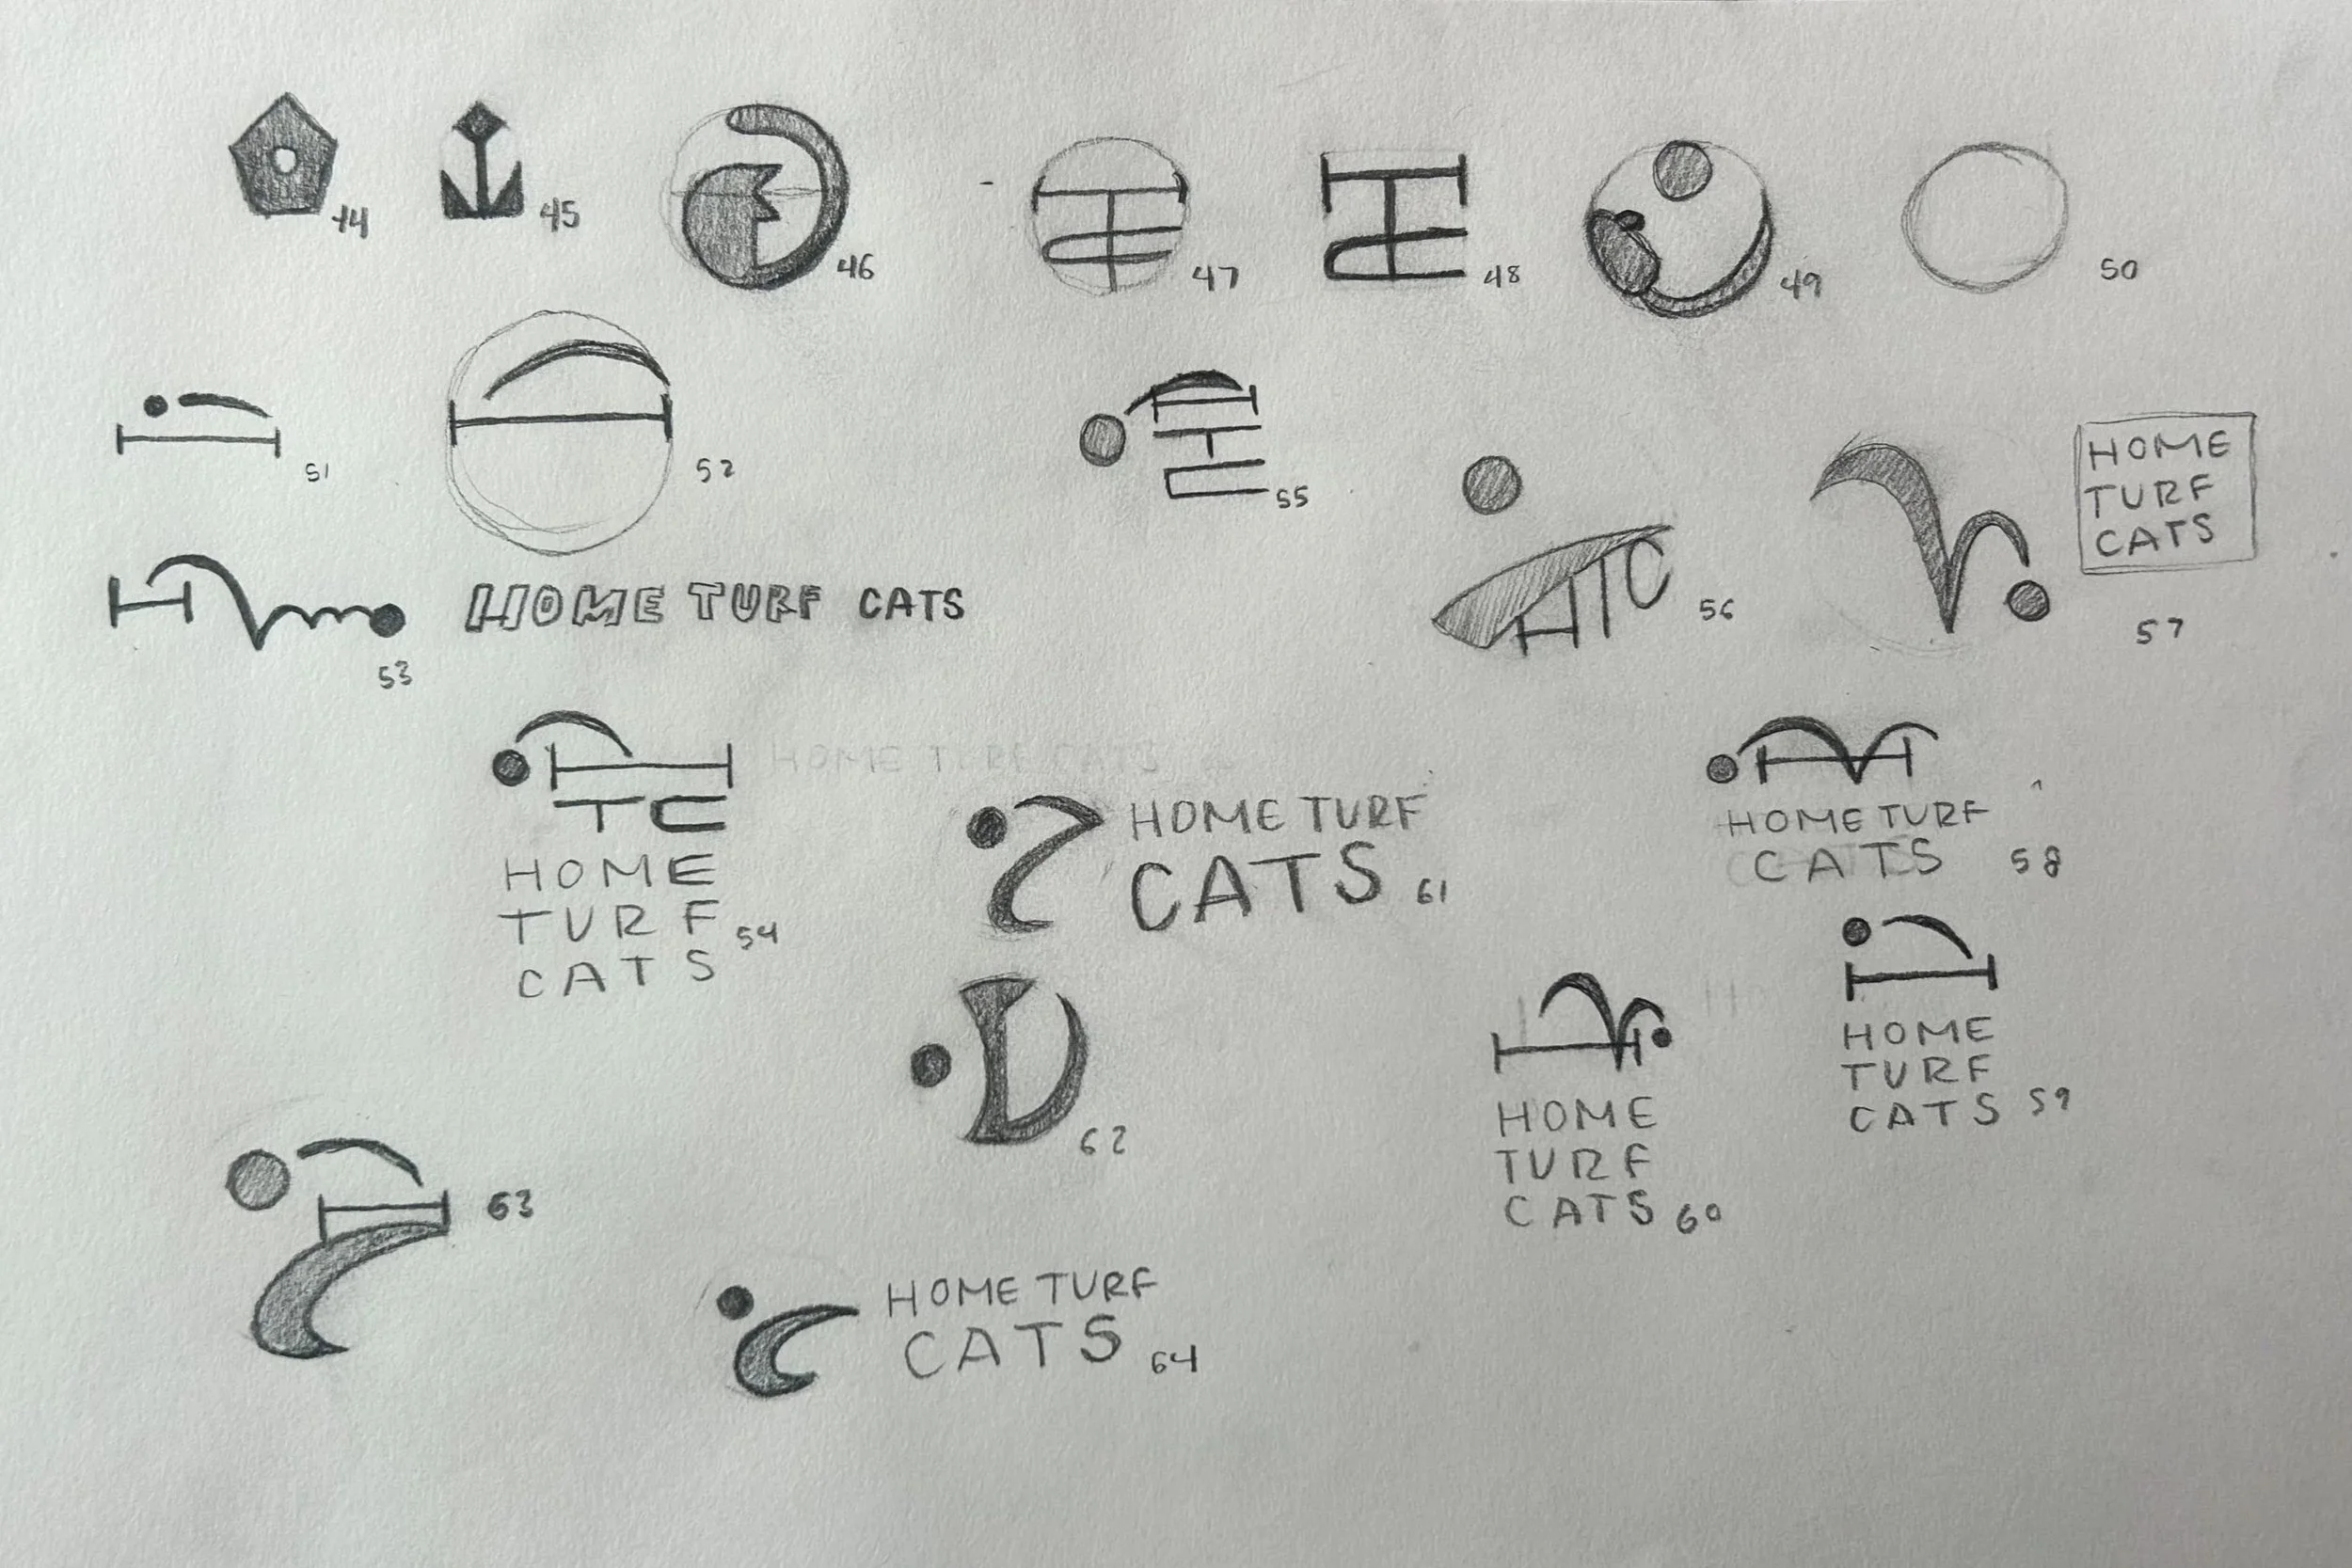 44
45
46
47
48
49
50
51
52
53
HOME TURF CATS
55
HTC
56
HOME
TURF
CATS
57
TC
HOME
TURF 54
CATS
HOME TURF CATS
HOME TURF
CATS 61
HOME TURF
CATS 58
62
HOME
TURF
CATS 59
HOME
TURF
CATS 60
63
HOME TURF
CATS 64